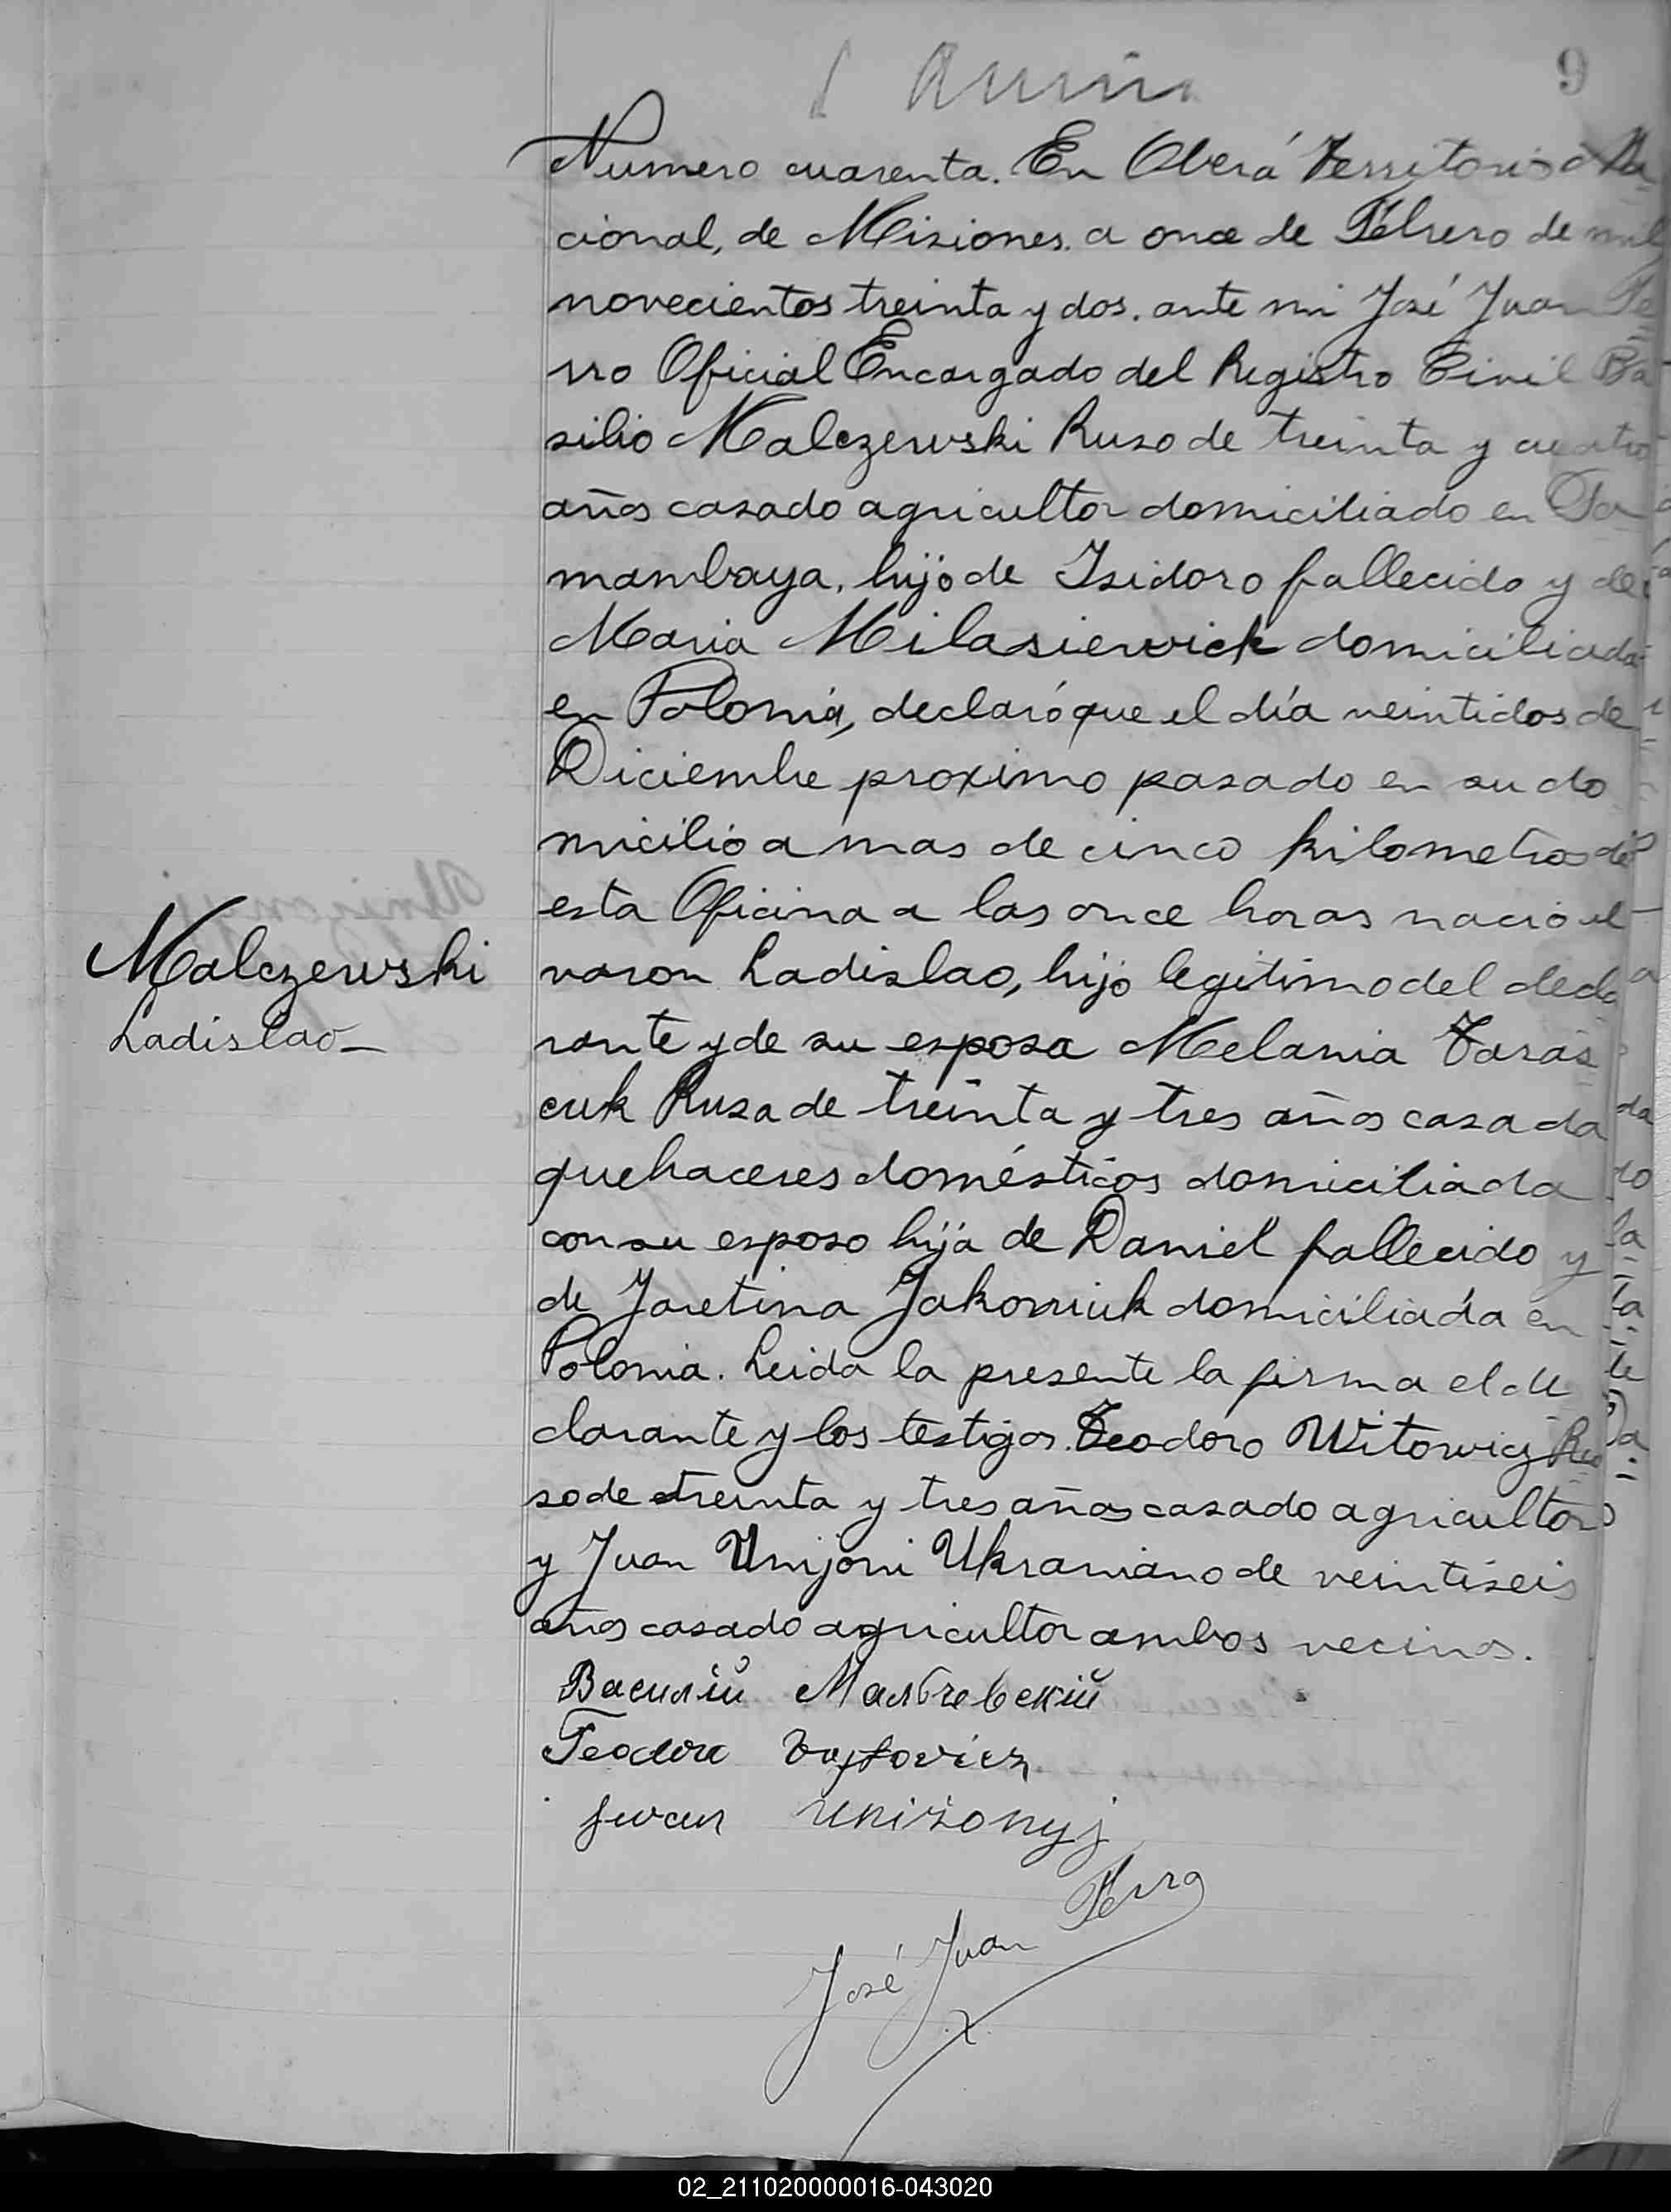 9
Numero cuarenta. En Oberá Territorio Na
cional, de Misiones. a once de Febrero de mil
novecientos treinta y dos. ante mi José Juan Fe
rro Oficial Encargado del Registro Civil Ba
silio Malczewski Ruso de treinta y cuatro
años casado agricultor domiciliado en
mambaya, hijo de Isidoro fallecido y de
Maria Milasiewick domiciliada
en Polonia, declaró que el día veintidos de
Diciembre proximo pasado en su do
micilio a mas de cinco kilometros de
esta Oficina a las once horas nació el
Malczewski
Ladislao
varon Ladislao, hijo legitimo del decla
rante y de su esposa Melania Taras
cuk Rusa de treinta y tres años casada
quehaceres domésticos domiciliada
con su esposo hija de Daniel fallecido y
de Jaretina Jakomiuk domiciliada en
Polonia. Leida la presente la firma el de
clarante y los testigos. Teodoro Witowicz Ru
so de treinta y tres años casado agricultor
y Juan Unijoni Ukraniano de veintiseis
años casado agricultor ambos vecinos.
Василій Малбчевскій
Teodor
Iwan Uniżonyj
José Juan Ferro
02_211020000016-043020